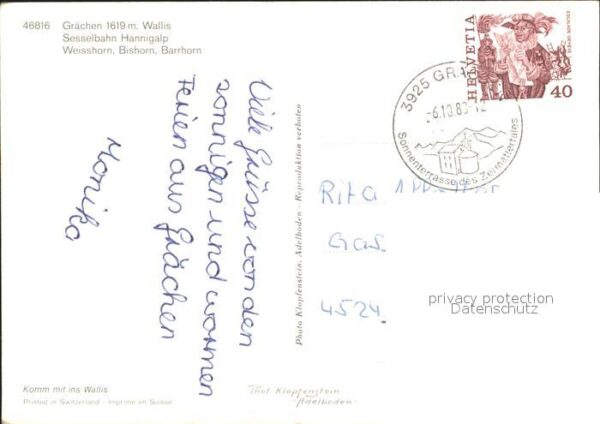 46816 Grächen 1619 m. Wallis
Sesselbahn Hannigalp
Weisshorn, Bishorn, Barrhorn
HELVETIA
40
3925 GR
-6.10.83-12
Sonnenterrasse des Zermattertales
Viele Grüsse von den
sonnigen und warmen
Ferien aus Grächen
Monika
Photo Klopfenstein, Adelboden - Reproduktion verboten
Rita
4524
privacy protection
Datenschutz
Komm mit ins Wallis
Printed in Switzerland - Imprimé en Suisse
Phot Klopfenstein
Adelboden